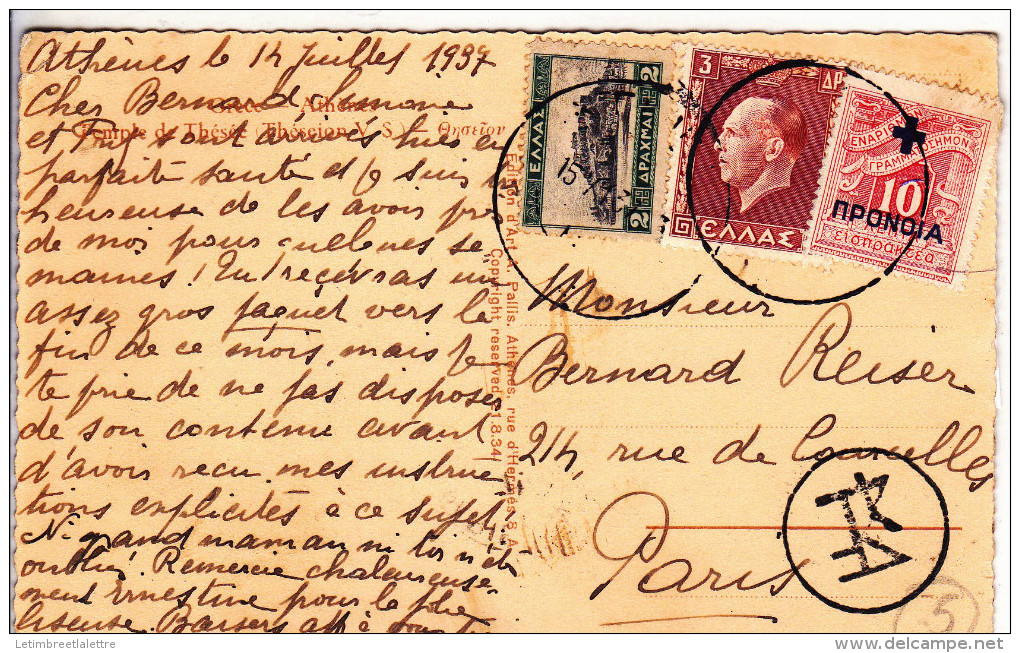 Athènes le 14 Juillet 1937
Cher Bernard Simone
Grèce — Athènes
et Puy sont arrivés hier en
Temple de Thésée (Théseion V. S.) — Θησεῖον
parfaite santé et je suis
heureuse de les avoir près
de moi pour quelques se
maines! Tu recevras un
assez gros paquet vers la
fin de ce mois, mais je
te prie de ne pas disposer
de son contenu avant
d'avoir recu mes instruc
tions explicites à ce sujet.
Ni grandmaman ni toi n'êtes
oubliés. Remercie chaleureuse-
ment Ernestine pour la jolie
liseuse. Baisers aff à vous
Edition d'Art A. Pallis, Athènes, rue d'Hermès 8 A
Copyright reserved 1.8.34
2 ΕΛΛΑΣ 2
2 ΔΡΑΧΜΑΙ 2
15
3 ΔΡ
ΕΛΛΑΣ
ΕΝΑΡΙΘΜΟΝ
ΓΡΑΜΜΑΤΟΣΗΜΟΝ
10
ΠΡΟΝΟΙΑ
εἰσπρακτέα
Monsieur
Bernard Reiser
214, rue de Courcelles
Paris
5
Letimbreetlalettre
delcampe.net